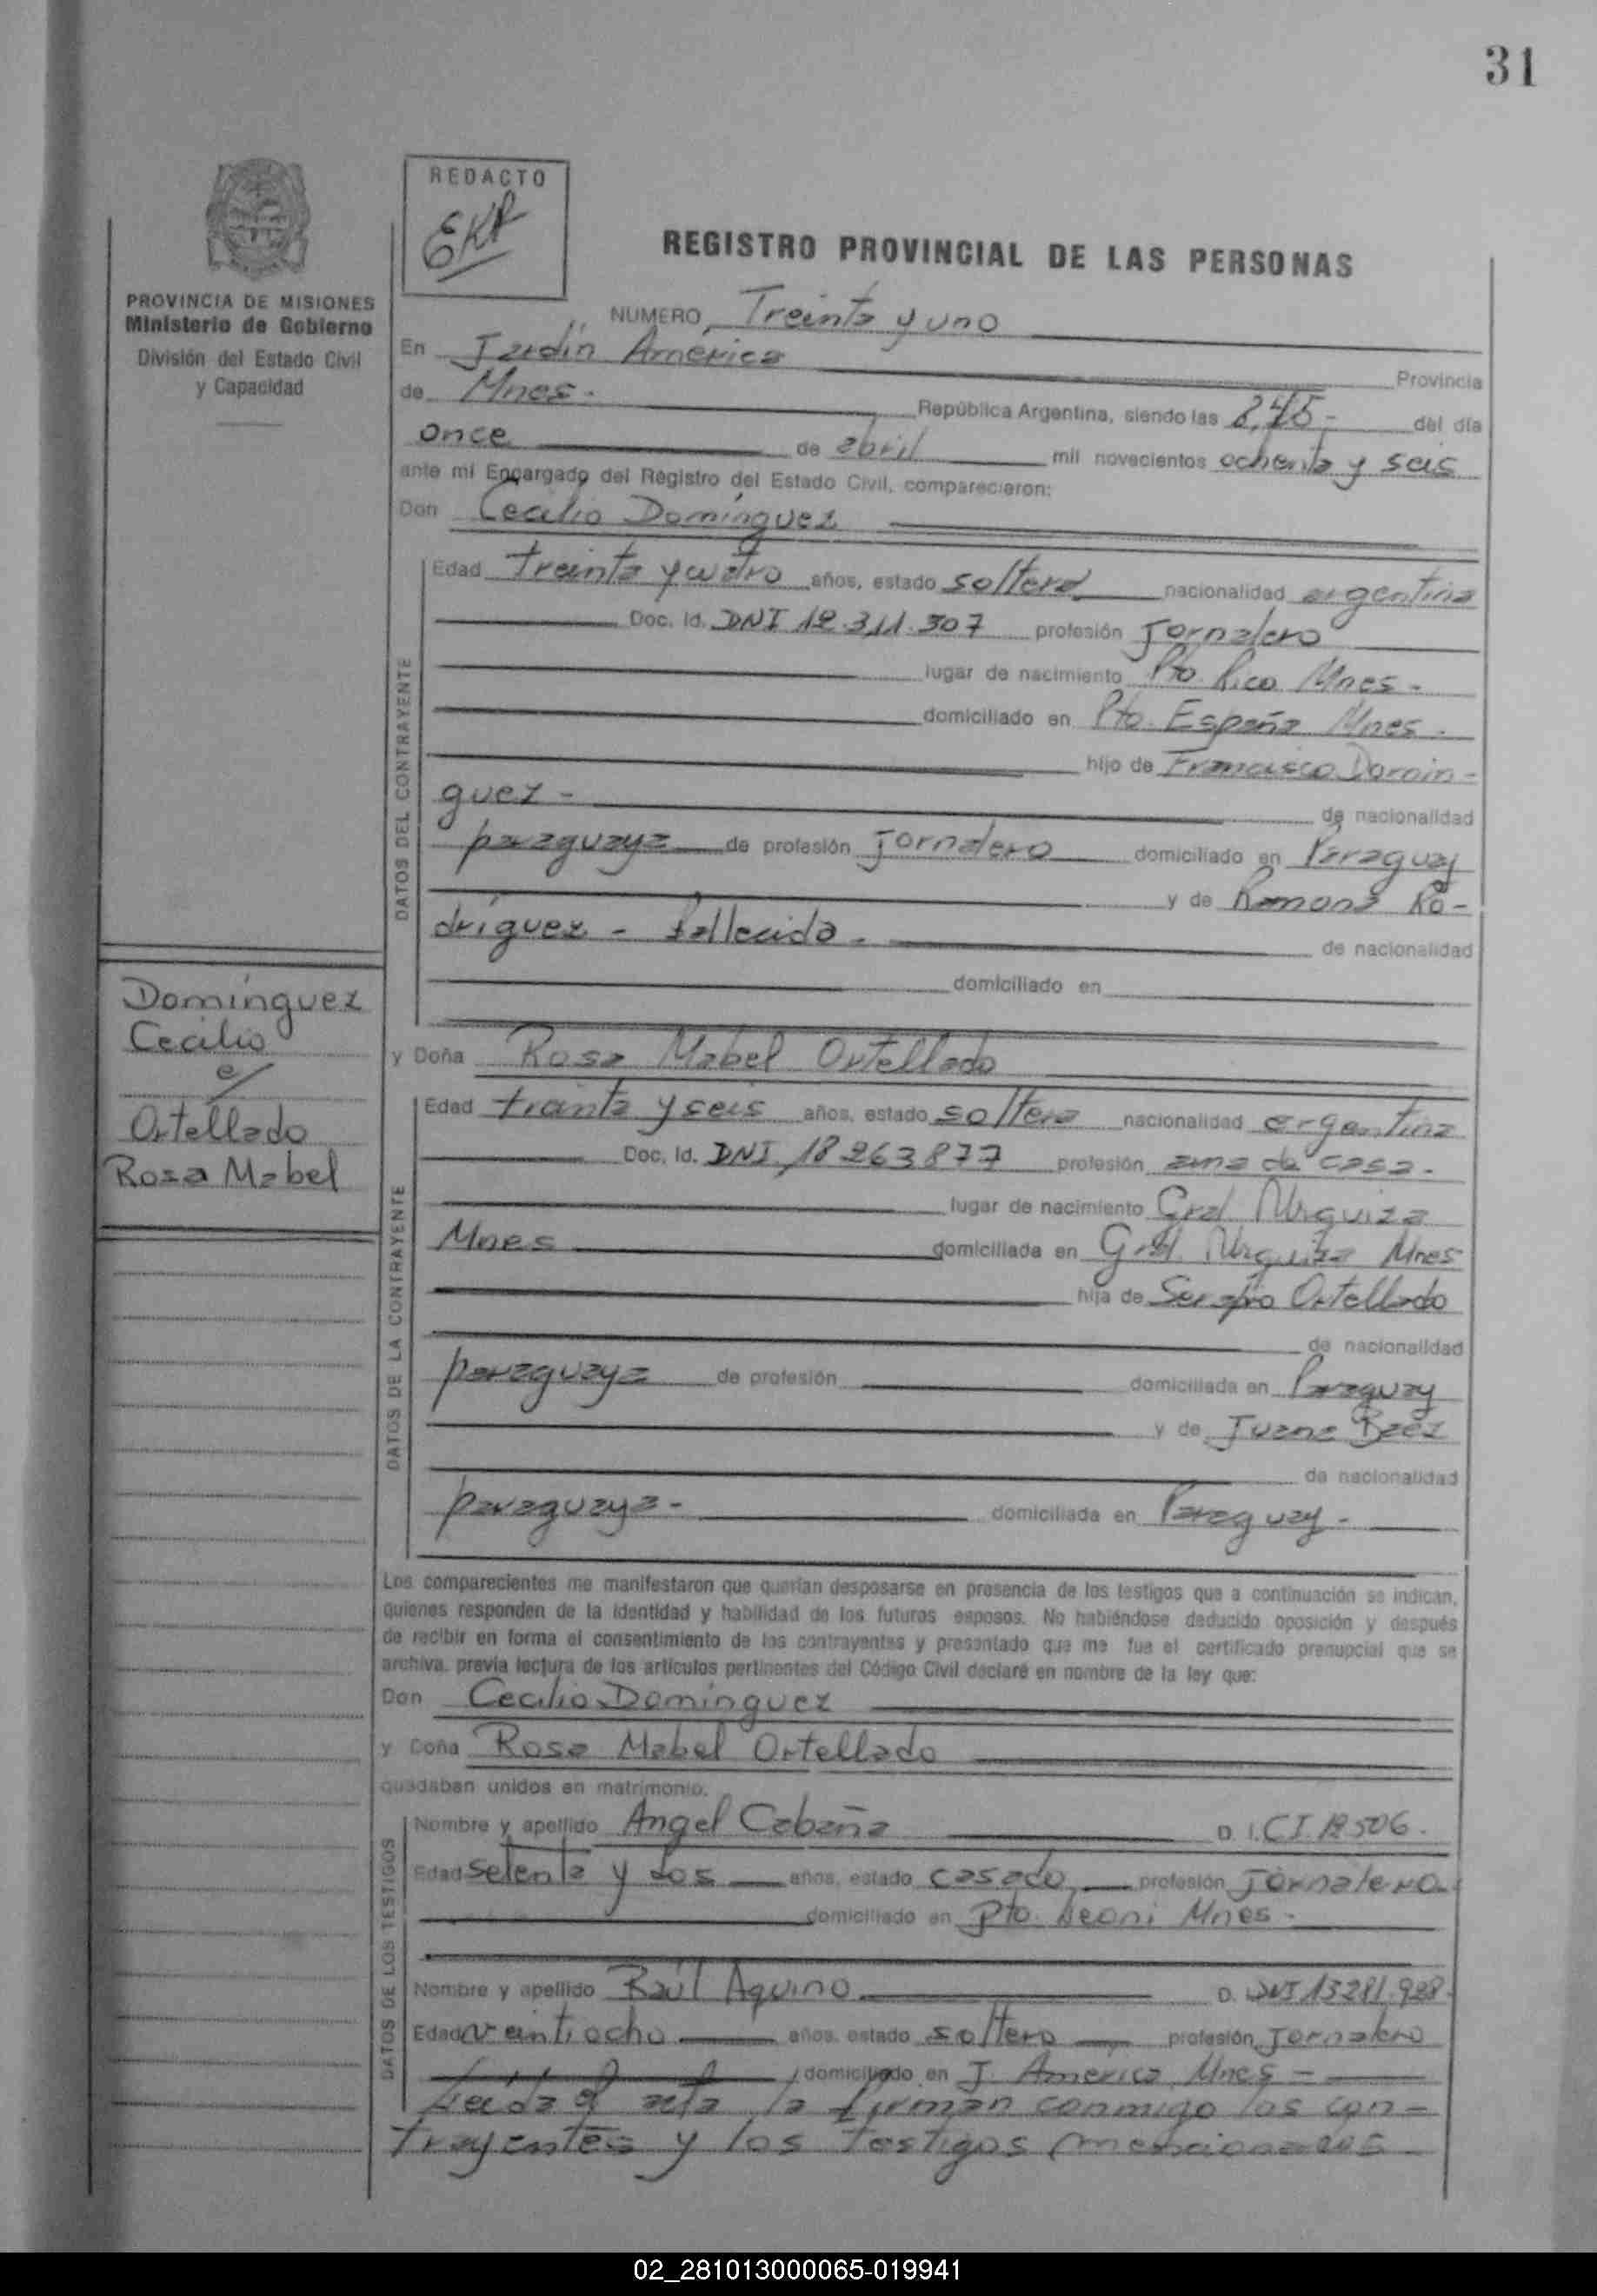 31
REDACTO
EKP
REGISTRO PROVINCIAL DE LAS PERSONAS
PROVINCIA DE MISIONES
Ministerio de Gobierno
División del Estado Civil
y Capacidad
NUMERO Treinta y uno
En Jardín América Provincia
de Mnes.- República Argentina, siendo las 8,45- del día
once de abril mil novecientos ochenta y seis
ante mi Encargado del Registro del Estado Civil, comparecieron:
Don Cecilio Domínguez
DATOS DEL CONTRAYENTE
Edad treinta y cuatro años, estado soltero nacionalidad argentina
Doc. Id. DNI 12.311.307 profesión Jornalero
lugar de nacimiento Pto. Rico Mnes-
domiciliado en Pto. España Mnes.
hijo de Francisco Domin-
guez- de nacionalidad
paraguaya de profesión Jornalero domiciliado en Paraguay
y de Ramona Ro-
dríguez - fallecida- de nacionalidad
domiciliado en
Domínguez
Cecilio
c/
Ortellado
Rosa Mabel
y Doña Rosa Mabel Ortellado
DATOS DE LA CONTRAYENTE
Edad treinta y seis años, estado soltera nacionalidad argentina
Doc. Id. DNI 18263877 profesión ama de casa-
lugar de nacimiento Gral Urquiza
Mnes domiciliada en Gral. Urquiza Mnes
hija de Serapio Ortellado
de nacionalidad
paraguaya de profesión domiciliada en Paraguay
y de Juana Baez
de nacionalidad
paraguaya- domiciliada en Paraguay-
Los comparecientes me manifestaron que querían desposarse en presencia de los testigos que a continuación se indican,
quienes responden de la identidad y habilidad de los futuros esposos. No habiéndose deducido oposición y después
de recibir en forma el consentimiento de los contrayentes y presentado que me fue el certificado prenupcial que se
archiva, previa lectura de los artículos pertinentes del Código Civil declaré en nombre de la ley que:
Don Cecilio Domínguez
y Doña Rosa Mabel Ortellado
quedaban unidos en matrimonio.
DATOS DE LOS TESTIGOS
Nombre y apellido Angel Cabaña D. I. CI 12506.
Edad setenta y dos años, estado casado profesión Jornalero
domiciliado en Pto. Leoni Mnes-
Nombre y apellido Raúl Aquino D. DNI 13281.988
Edad veintiocho años, estado soltero profesión Jornalero
domiciliado en J. América Mnes-
Leída el acta la firman conmigo los con-
trayentes y los testigos mencionados
02_281013000065-019941